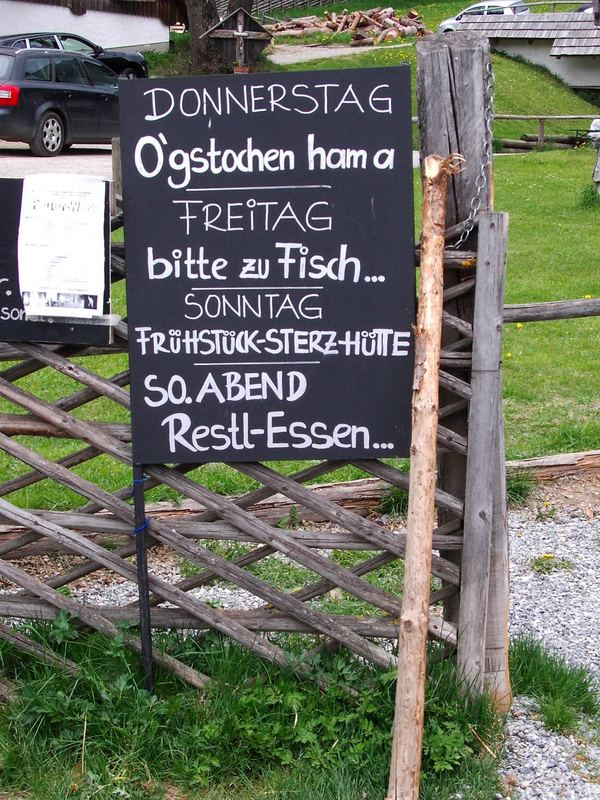 DONNERSTAG
O'gstochen ham a
FREITAG
bitte zu Fisch...
SONNTAG
FRÜHSTÜCK-STERZ-HÜTTE
SO. ABEND
Restl-Essen...